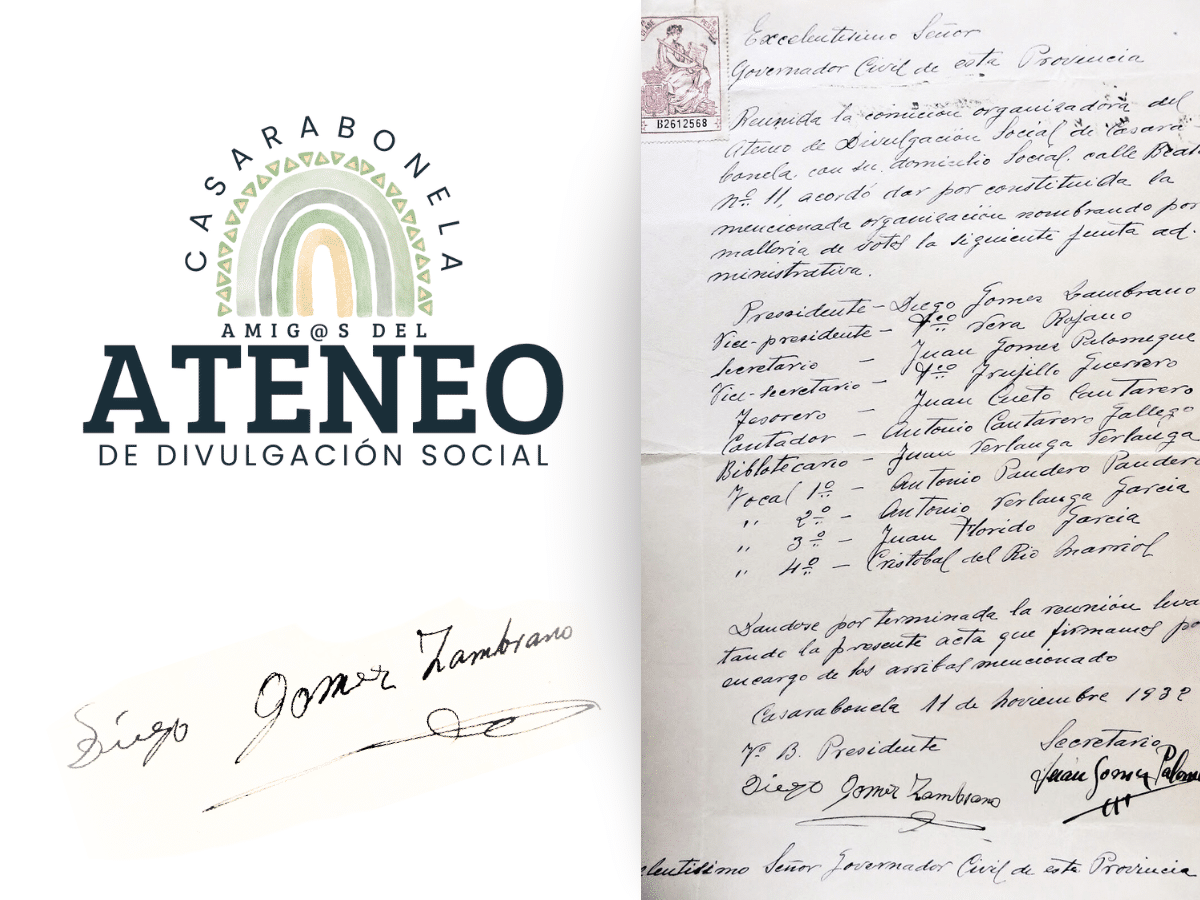 CASARABONELA
AMIG@S DEL
ATENEO
DE DIVULGACIÓN SOCIAL
Diego Gomez Zambrano
B2612568
Excelentisimo Señor
Governador Civil de esta Provincia
Reunida la comición organisadora del
Ateneo de Divulgación Social de Casara
bonela, con su domicilio Social, calle
nº 11, acordó dar por constituida la
mencionada organisación nombrando por
malloria de votos la siguiente junta ad.
ministrativa.
Pressidente - Diego Gomez Zambrano
Vice-presidente - Fco Vera Rojano
Secretario - Juan Gomez Palomeque
Vice-secretario - Fco Trujillo Guerrero
Tesorero - Juan Cueto Cantarero
Contador - Antonio Cantarero Gallego
Bibliotecario - Juan Verlanga Verlanga
Vocal 1º - Antonio Pandero Pandero
" 2º - Antonio Verlanga Garcia
" 3º - Juan Florido Garcia
" 4º - Cristobal del Rio
Dandose por terminada la reunión leva
tande la presente acta que firmamos po
encargo de los arribas mencionado
Casarabonela 11 de noviembre 1932
Vº B. Presidente Secretario
Diego Gomez Zambrano Juan Gomez Palome
elentisimo Señor Governador Civil de esta Provincia